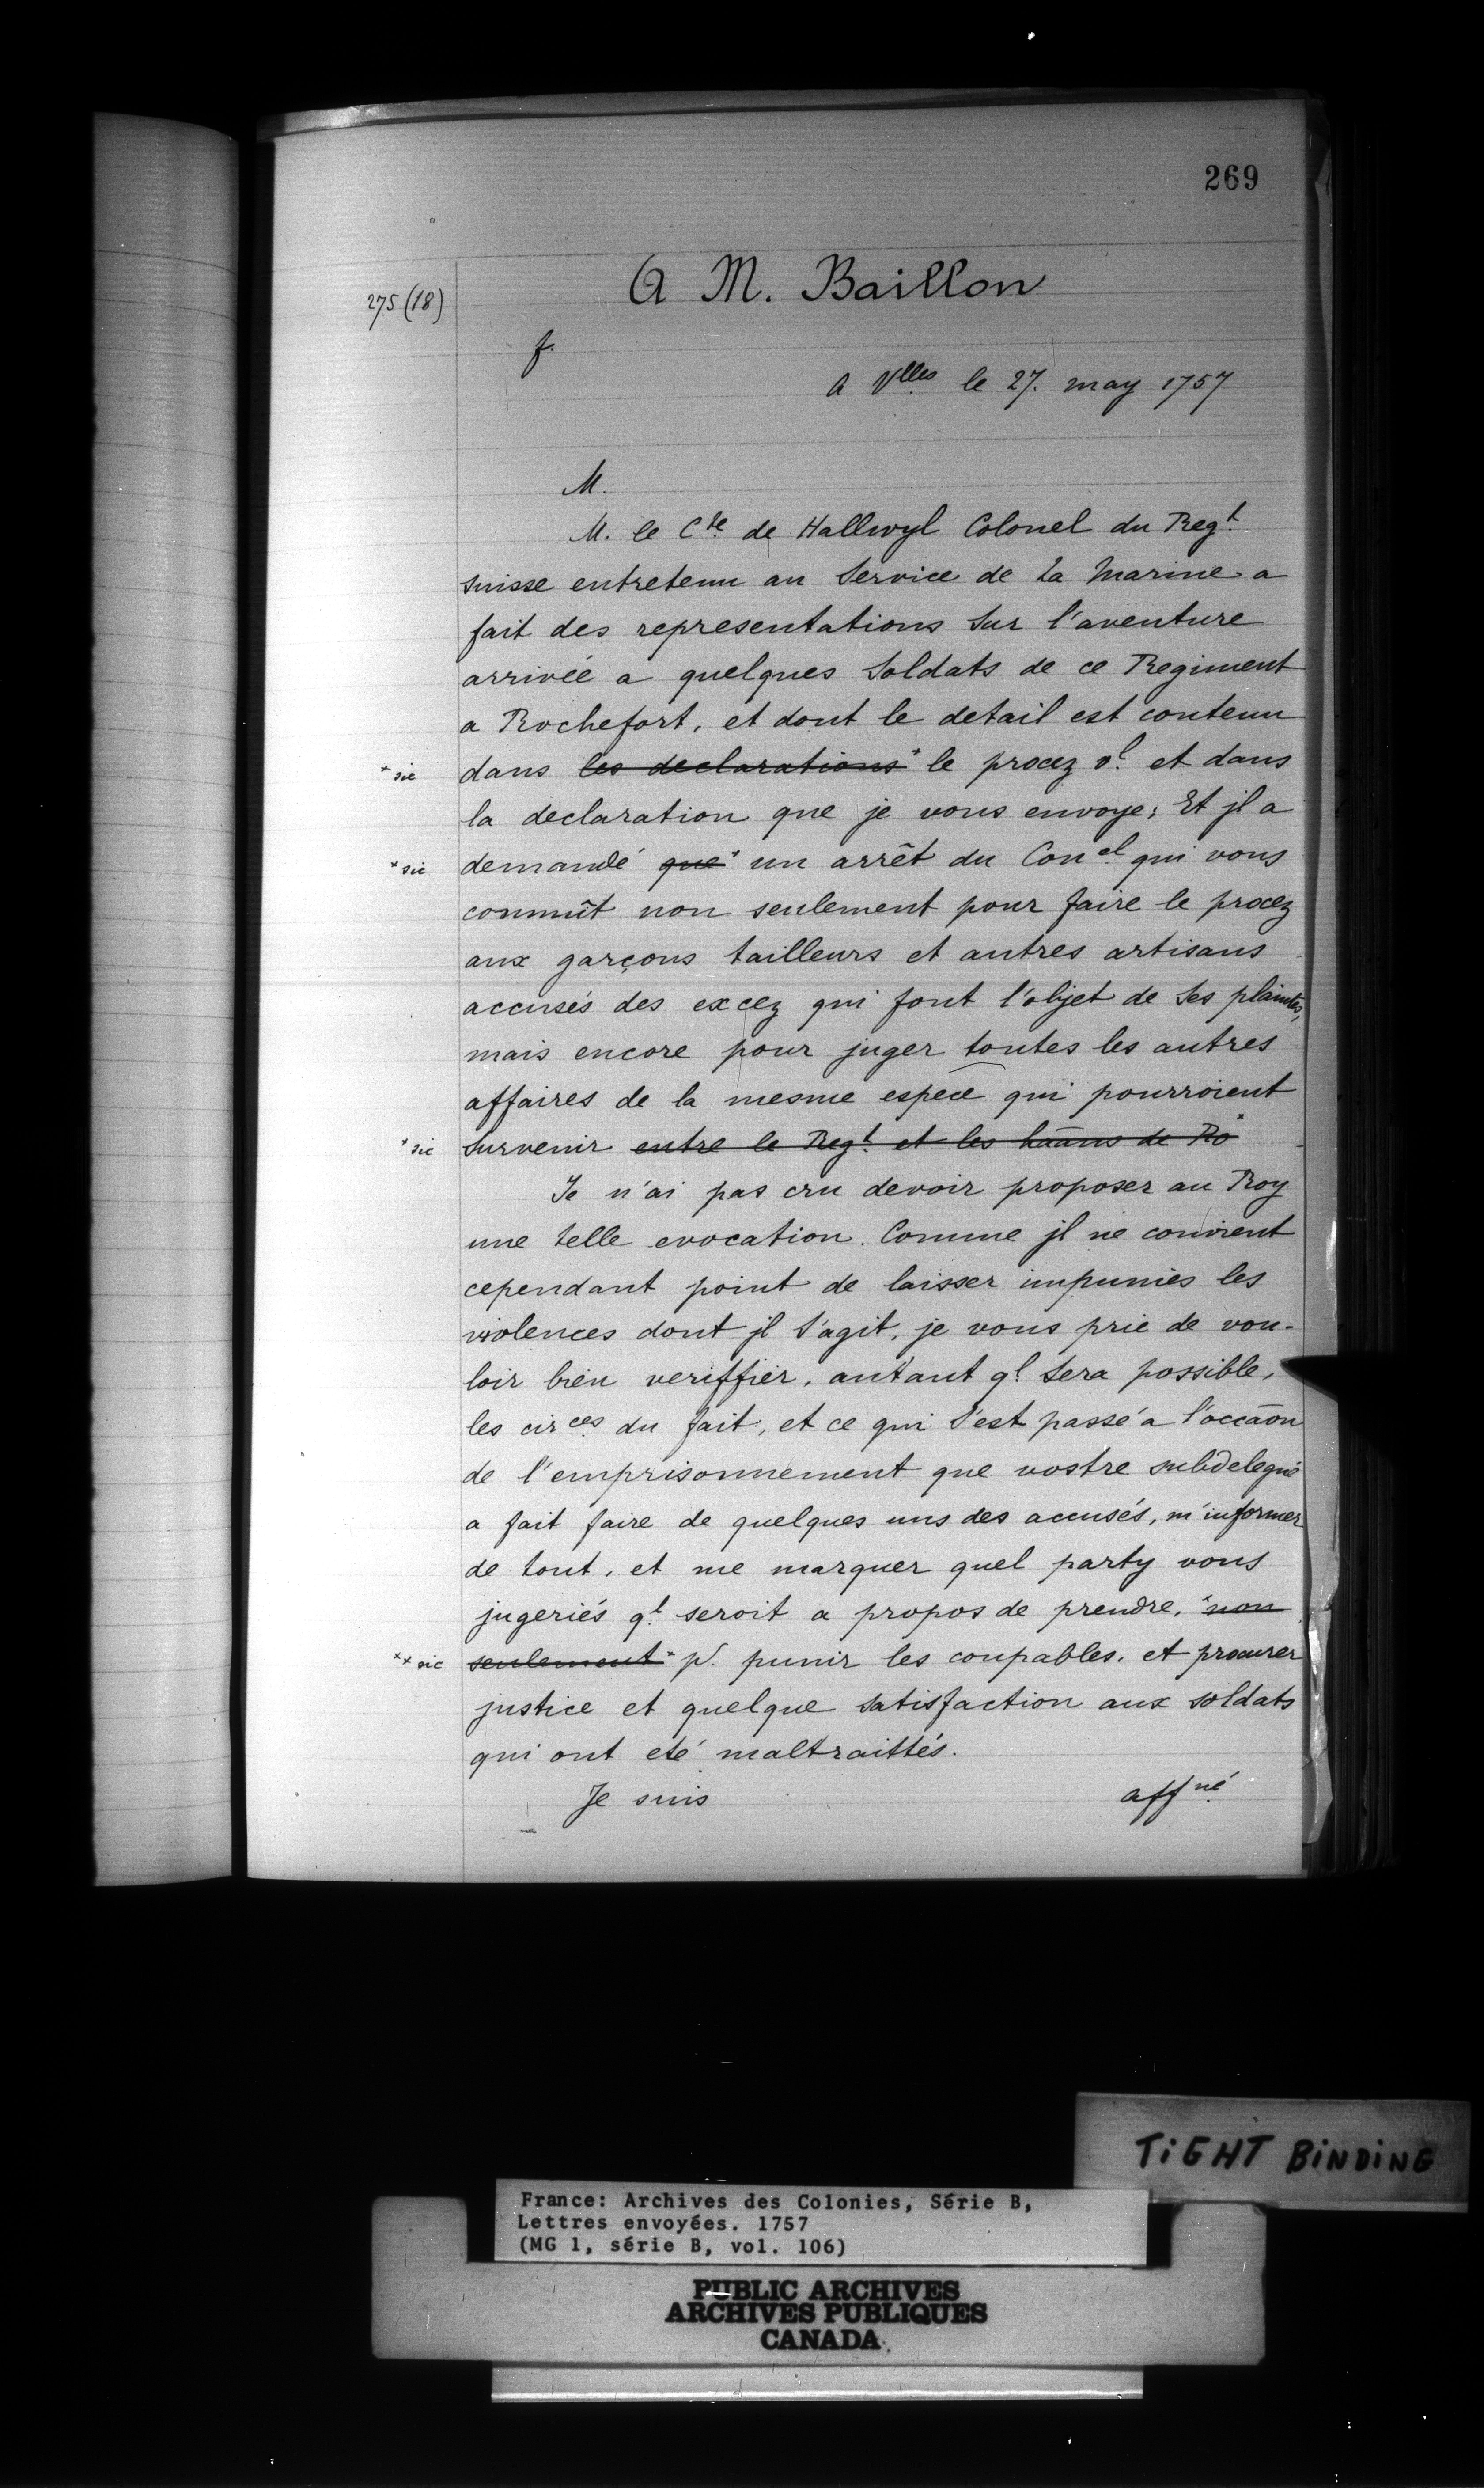 269
A M. Baillon
275 (18)
f.
A Vlles le 27. may 1757
M.
M. le Cte de Hallwyl Colonel du Regt
suisse entretenu au Service de La Marine a
fait des representations Sur l'aventure
arrivée a quelques Soldats de ce Regiment
a Rochefort, et dont le detail est contenu
* sic dans les declarations* le procez vl et dans
la declaration que je vous envoye; Et jl a
* sic demandé que* un arrêt du Conel qui vous
commît non seulement pour faire le procez
aux garçons tailleurs et autres artisans
accusés des excez qui font l'objet de Ses plaintes,
mais encore pour juger toutes les autres
affaires de la mesme espece qui pourroient
* sic Survenir entre le Regt et les hāāns de Ro*
Je n'ai pas cru devoir proposer au Roy
une telle evocation. Comme jl ne convient
cependant point de laisser impunies les
violences dont jl S'agit, je vous prie de vou-
loir bien veriffier, autant ql Sera possible,
les circes du fait, et ce qui S'est passé a l'occāon
de l'emprisonnement que vostre subdelegué
a fait faire de quelques uns des accusés, m'informer
de tout, et me marquer quel party vous
jugeriés ql seroit a propos de prendre, *non
** sic seulement* pr. punir les coupables, et procurer
justice et quelque Satisfaction aux soldats
qui ont eté maltraittés.
Je suis affné
TIGHT BINDING
France: Archives des Colonies, Série B,
Lettres envoyées. 1757
(MG 1, série B, vol. 106)
PUBLIC ARCHIVES
ARCHIVES PUBLIQUES
CANADA